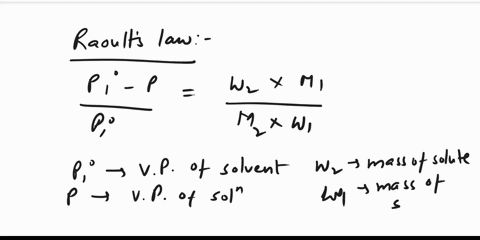 Raoult's law:-
P₁° - P / P₁° = W₂ × M₁ / M₂ × W₁
P₁° → V.P. of solvent W₂ → mass of solute
P → V.P. of solⁿ W₁ → mass of
s